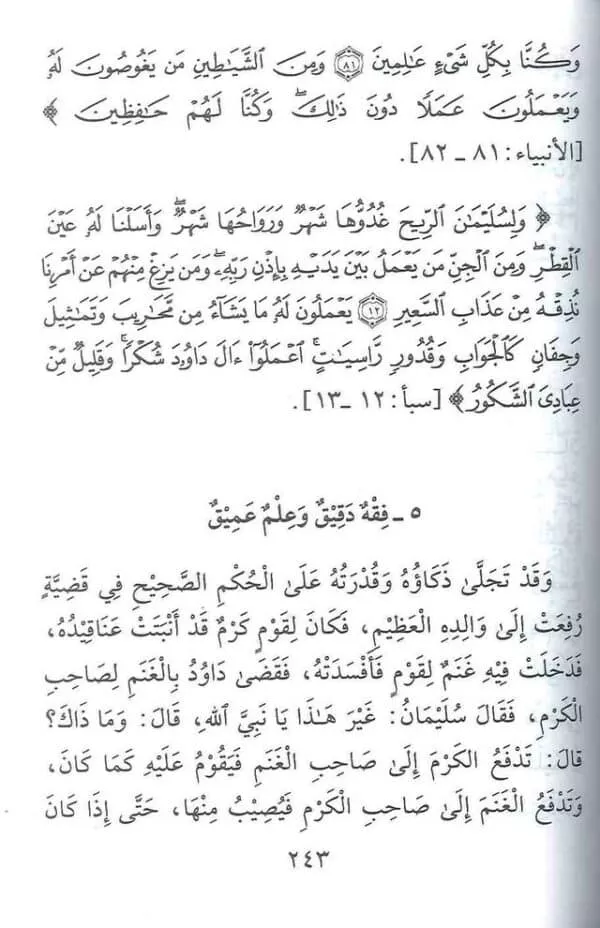 وَكُنَّا بِكُلِّ شَىْءٍ عَٰلِمِينَ ۝٨١ وَمِنَ ٱلشَّيَٰطِينِ مَن يَغُوصُونَ لَهُۥ
وَيَعْمَلُونَ عَمَلًا دُونَ ذَٰلِكَ ۖ وَكُنَّا لَهُمْ حَٰفِظِينَ ﴾
[الأنبياء: ٨١ - ٨٢].
﴿ وَلِسُلَيْمَٰنَ ٱلرِّيحَ غُدُوُّهَا شَهْرٌ وَرَوَاحُهَا شَهْرٌ ۖ وَأَسَلْنَا لَهُۥ عَيْنَ
ٱلْقِطْرِ ۖ وَمِنَ ٱلْجِنِّ مَن يَعْمَلُ بَيْنَ يَدَيْهِ بِإِذْنِ رَبِّهِۦ ۖ وَمَن يَزِغْ مِنْهُمْ عَنْ أَمْرِنَا
نُذِقْهُ مِنْ عَذَابِ ٱلسَّعِيرِ ۝١٢ يَعْمَلُونَ لَهُۥ مَا يَشَآءُ مِن مَّحَٰرِيبَ وَتَمَٰثِيلَ
وَجِفَانٍ كَٱلْجَوَابِ وَقُدُورٍ رَّاسِيَٰتٍ ۚ ٱعْمَلُوٓا۟ ءَالَ دَاوُۥدَ شُكْرًا ۚ وَقَلِيلٌ مِّنْ
عِبَادِىَ ٱلشَّكُورُ ﴾ [سبأ: ١٢ - ١٣].
٥ - فِقْهٌ دَقِيْقٌ وَعِلْمٌ عَمِيْقٌ
وَقَدْ تَجَلَّىٰ ذَكَاؤُهُ وَقُدْرَتُهُ عَلَىٰ الْحُكْمِ الصَّحِيْحِ فِي قَضِيَّةٍ
رُفِعَتْ إِلَىٰ وَالِدِهِ الْعَظِيْمِ، فَكَانَ لِقَوْمٍ كَرْمٌ قَدْ أَنْبَتَتْ عَنَاقِيْدُهُ،
فَدَخَلَتْ فِيْهِ غَنَمٌ لِقَوْمٍ فَأَفْسَدَتْهُ، فَقَضَىٰ دَاوُدُ بِالْغَنَمِ لِصَاحِبِ
الْكَرْمِ، فَقَالَ سُلَيْمَانُ: غَيْرَ هَـٰذَا يَا نَبِيَّ اللهِ، قَالَ: وَمَا ذَاكَ؟
قَالَ: تَدْفَعُ الكَرْمَ إِلَىٰ صَاحِبِ الْغَنَمِ فَيَقُوْمُ عَلَيْهِ كَمَا كَانَ،
وَتَدْفَعُ الْغَنَمَ إِلَىٰ صَاحِبِ الْكَرْمِ فَيُصِيْبُ مِنْهَا، حَتَّىٰ إِذَا كَانَ
٢٤٣